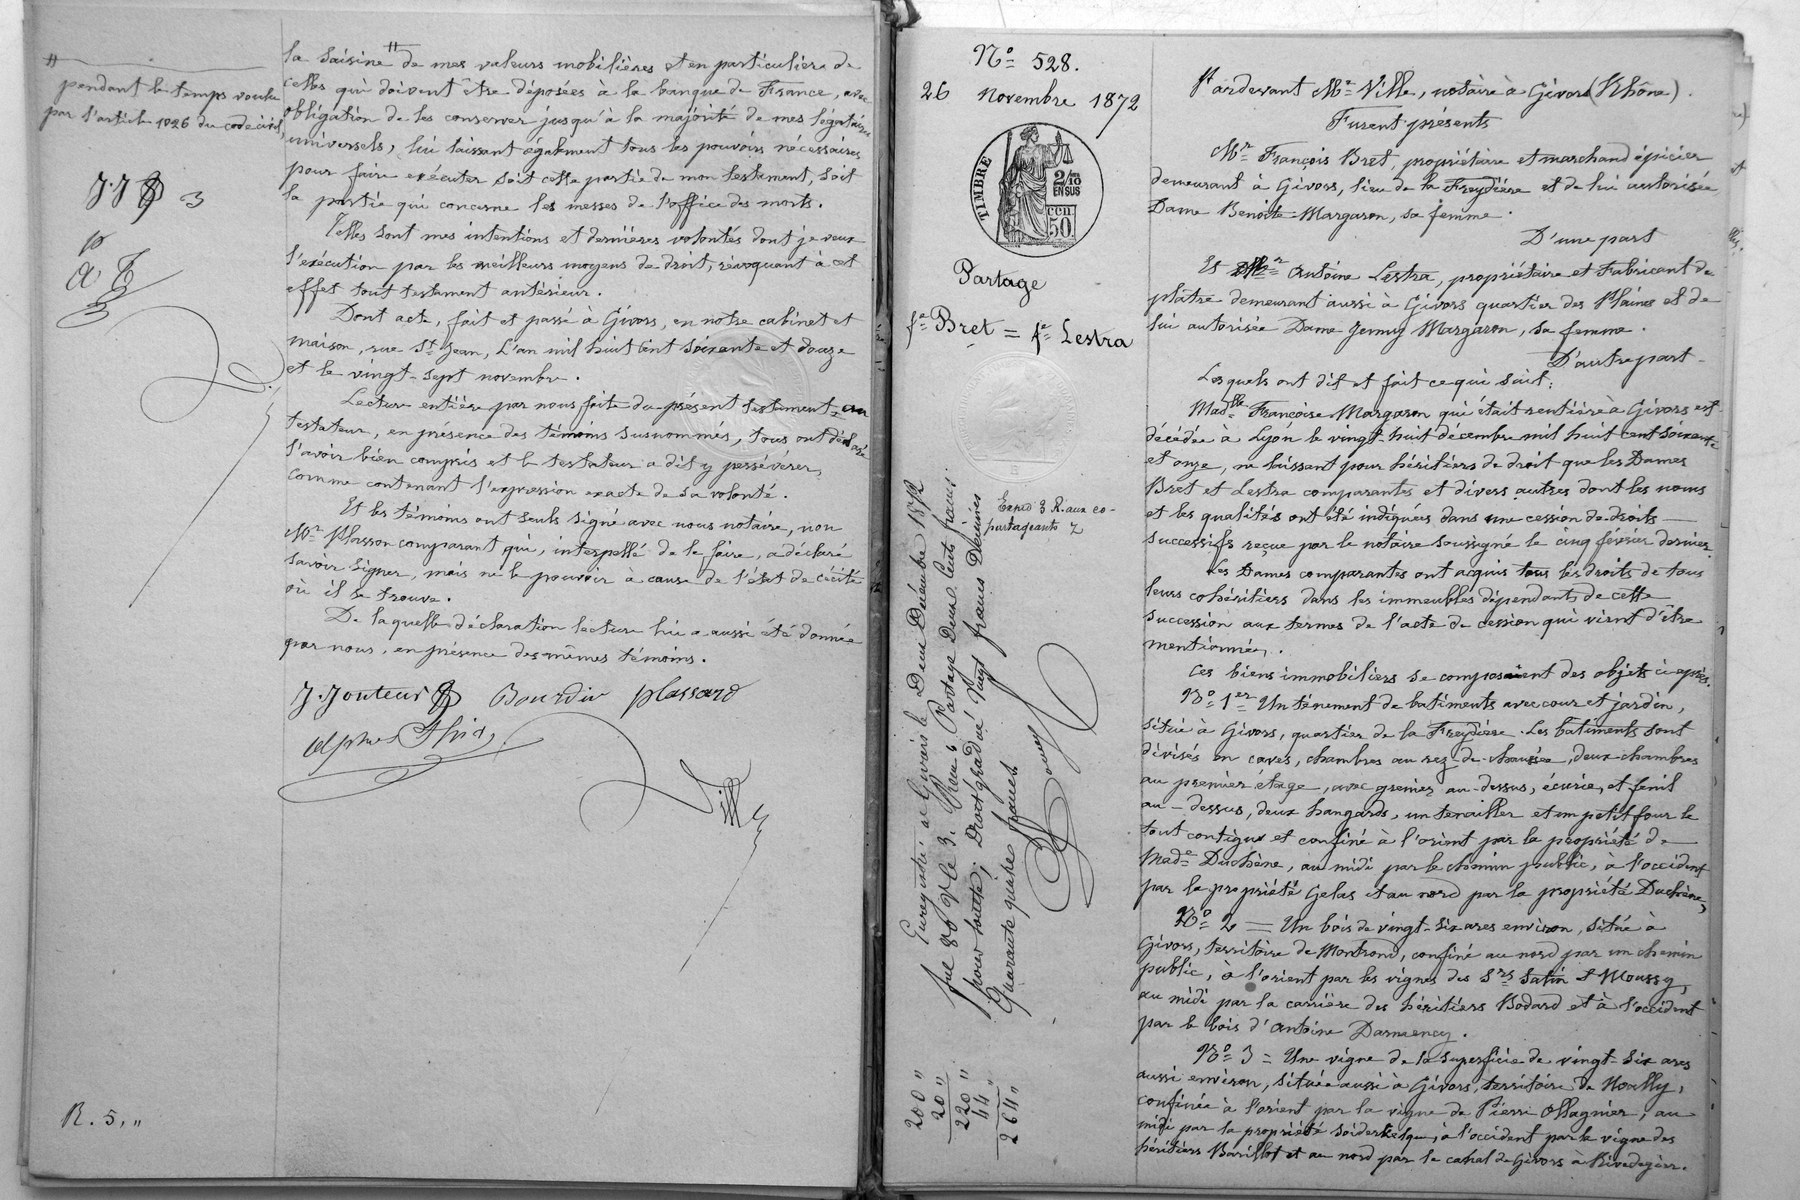 pendant le temps voulu
par l'article 1026 du code civil,
J.J 3
R. 5, "
la saisine de mes valeurs mobilières et en particulier de
celles qui doivent être déposées à la banque de France, avec
obligation de les conserver jusqu'à la majorité de mes légataires
universels, lui laissant également tous les pouvoirs nécessaires
pour faire exécuter soit cette partie de mon testament, soit
la partie qui concerne les messes de l'office des morts.
Telles sont mes intentions et dernières volontés dont je veux
l'exécution par les meilleurs moyens de droit, révoquant à cet
effet tout testament antérieur.
Dont acte, fait et passé à Givors, en notre cabinet et
maison, rue St Jean, L'an mil huit cent soixante et douze
et le vingt-sept novembre.
Lecture entière par nous faite du présent testament au
testateur, en présence des témoins susnommés, tous ont déclaré
l'avoir bien compris et le testateur a dit y persévérer,
comme contenant l'expression exacte de sa volonté.
Et les témoins ont seuls signé avec nous notaire, non
Mr Plasson comparant qui, interpellé de le faire, a déclaré
savoir signer, mais ne le pouvoir à cause de l'état de cécité
où il se trouve.
De laquelle déclaration lecture lui a aussi été donnée
par nous, en présence des mêmes témoins.
J. Jouteur Bourdin plassard
Ville
No 528.
26 novembre 1872
TIMBRE
2/10
EN SUS
50 cen
Partage
fe Bret = fe Lestra
Exped 3 R. aux co-
partageants
Enregistré à Givors le Deux Décembre 1872
fol 80 Vo Ce 3. Reçu Partage Deux Cents francs
pour soulte, Droit gradué Vingt francs Décimes
Quarante quatre francs.
200 "
20 "
220 "
44 "
264 "
Pardevant Me Ville, notaire à Givors (Rhône).
Furent présents
Mr François Bret, propriétaire et marchand épicier
demeurant à Givors, lieu de la Freydière et de lui autorisée
Dame Benoite Margaron, sa femme.
D'une part
Et Mr Antoine Lestra, propriétaire et Fabricant de
plâtre demeurant aussi à Givors quartier des Plaines et de
lui autorisée Dame Jenny Margaron, sa femme.
D'autre part
Lesquels ont dit et fait ce qui suit:
Madlle Françoise Margaron qui était rentière à Givors est
décédée à Lyon le vingt-huit décembre mil huit cent soixante
et onze, ne laissant pour héritiers de droit que les Dames
Bret et Lestra comparantes et divers autres dont les noms
et les qualités ont été indiquées dans une cession de droits
successifs reçue par le notaire soussigné le cinq février dernier.
Les Dames comparantes ont acquis tous les droits de tous
leurs cohéritiers dans les immeubles dépendants de cette
succession aux termes de l'acte de cession qui vient d'être
mentionnée.
Ces biens immobiliers se composaient des objets ci-après.
No 1er Un ténement de batiments avec cour et jardin,
situé à Givors, quartier de la Freydière. Les batiments sont
divisés en caves, chambres au rez-de-chaussée, deux chambres
au premier étage, avec grenier au-dessus, écurie, et fenil
au-dessus, deux hangards, un tenailler et un petit four le
tout contigu et confiné à l'orient par la propriété de
Made Duchène, au midi par le chemin public, à l'occident
par la propriété Gelas et au nord par la propriété Duchène,
No 2 = Un bois de vingt-six ares environ, situé à
Givors, territoire de Montrond, confiné au nord par un chemin
public, à l'orient par les vignes des Srs Satin et Moussy,
au midi par la carrière des héritiers Bodard et à l'occident
par le bois d'Antoine Darmency.
No 3 = Une vigne de la superficie de vingt-six ares
aussi environ, située aussi à Givors, territoire de Noailly,
confinée à l'orient par la vigne de Pierre Ollagnier, au
midi par la propriété à l'occident par la vigne des
héritiers Barillot et au nord par le canal de Givors à Rivedegier.